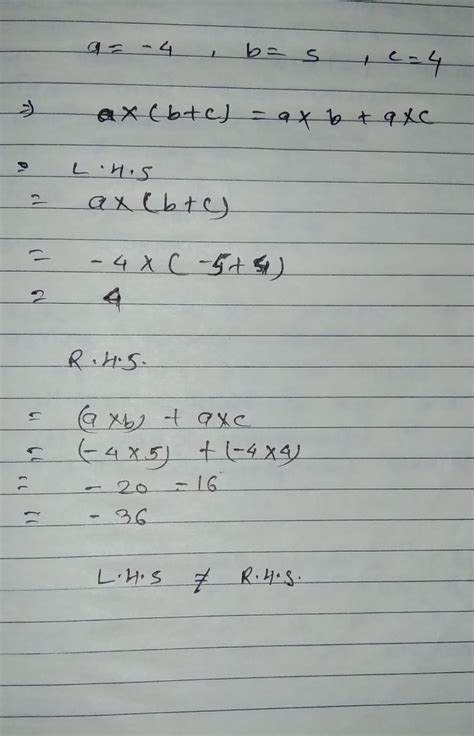 a = -4 , b = 5 , c = 4
⇒ a × (b+c) = a × b + a × c
= L.H.S
= a × (b+c)
= -4 × ( -5 + 4)
= 4
R.H.S.
= (a × b) + a × c
= (-4 × 5) + (-4 × 4)
= - 20 - 16
= - 36
L.H.S ≠ R.H.S.